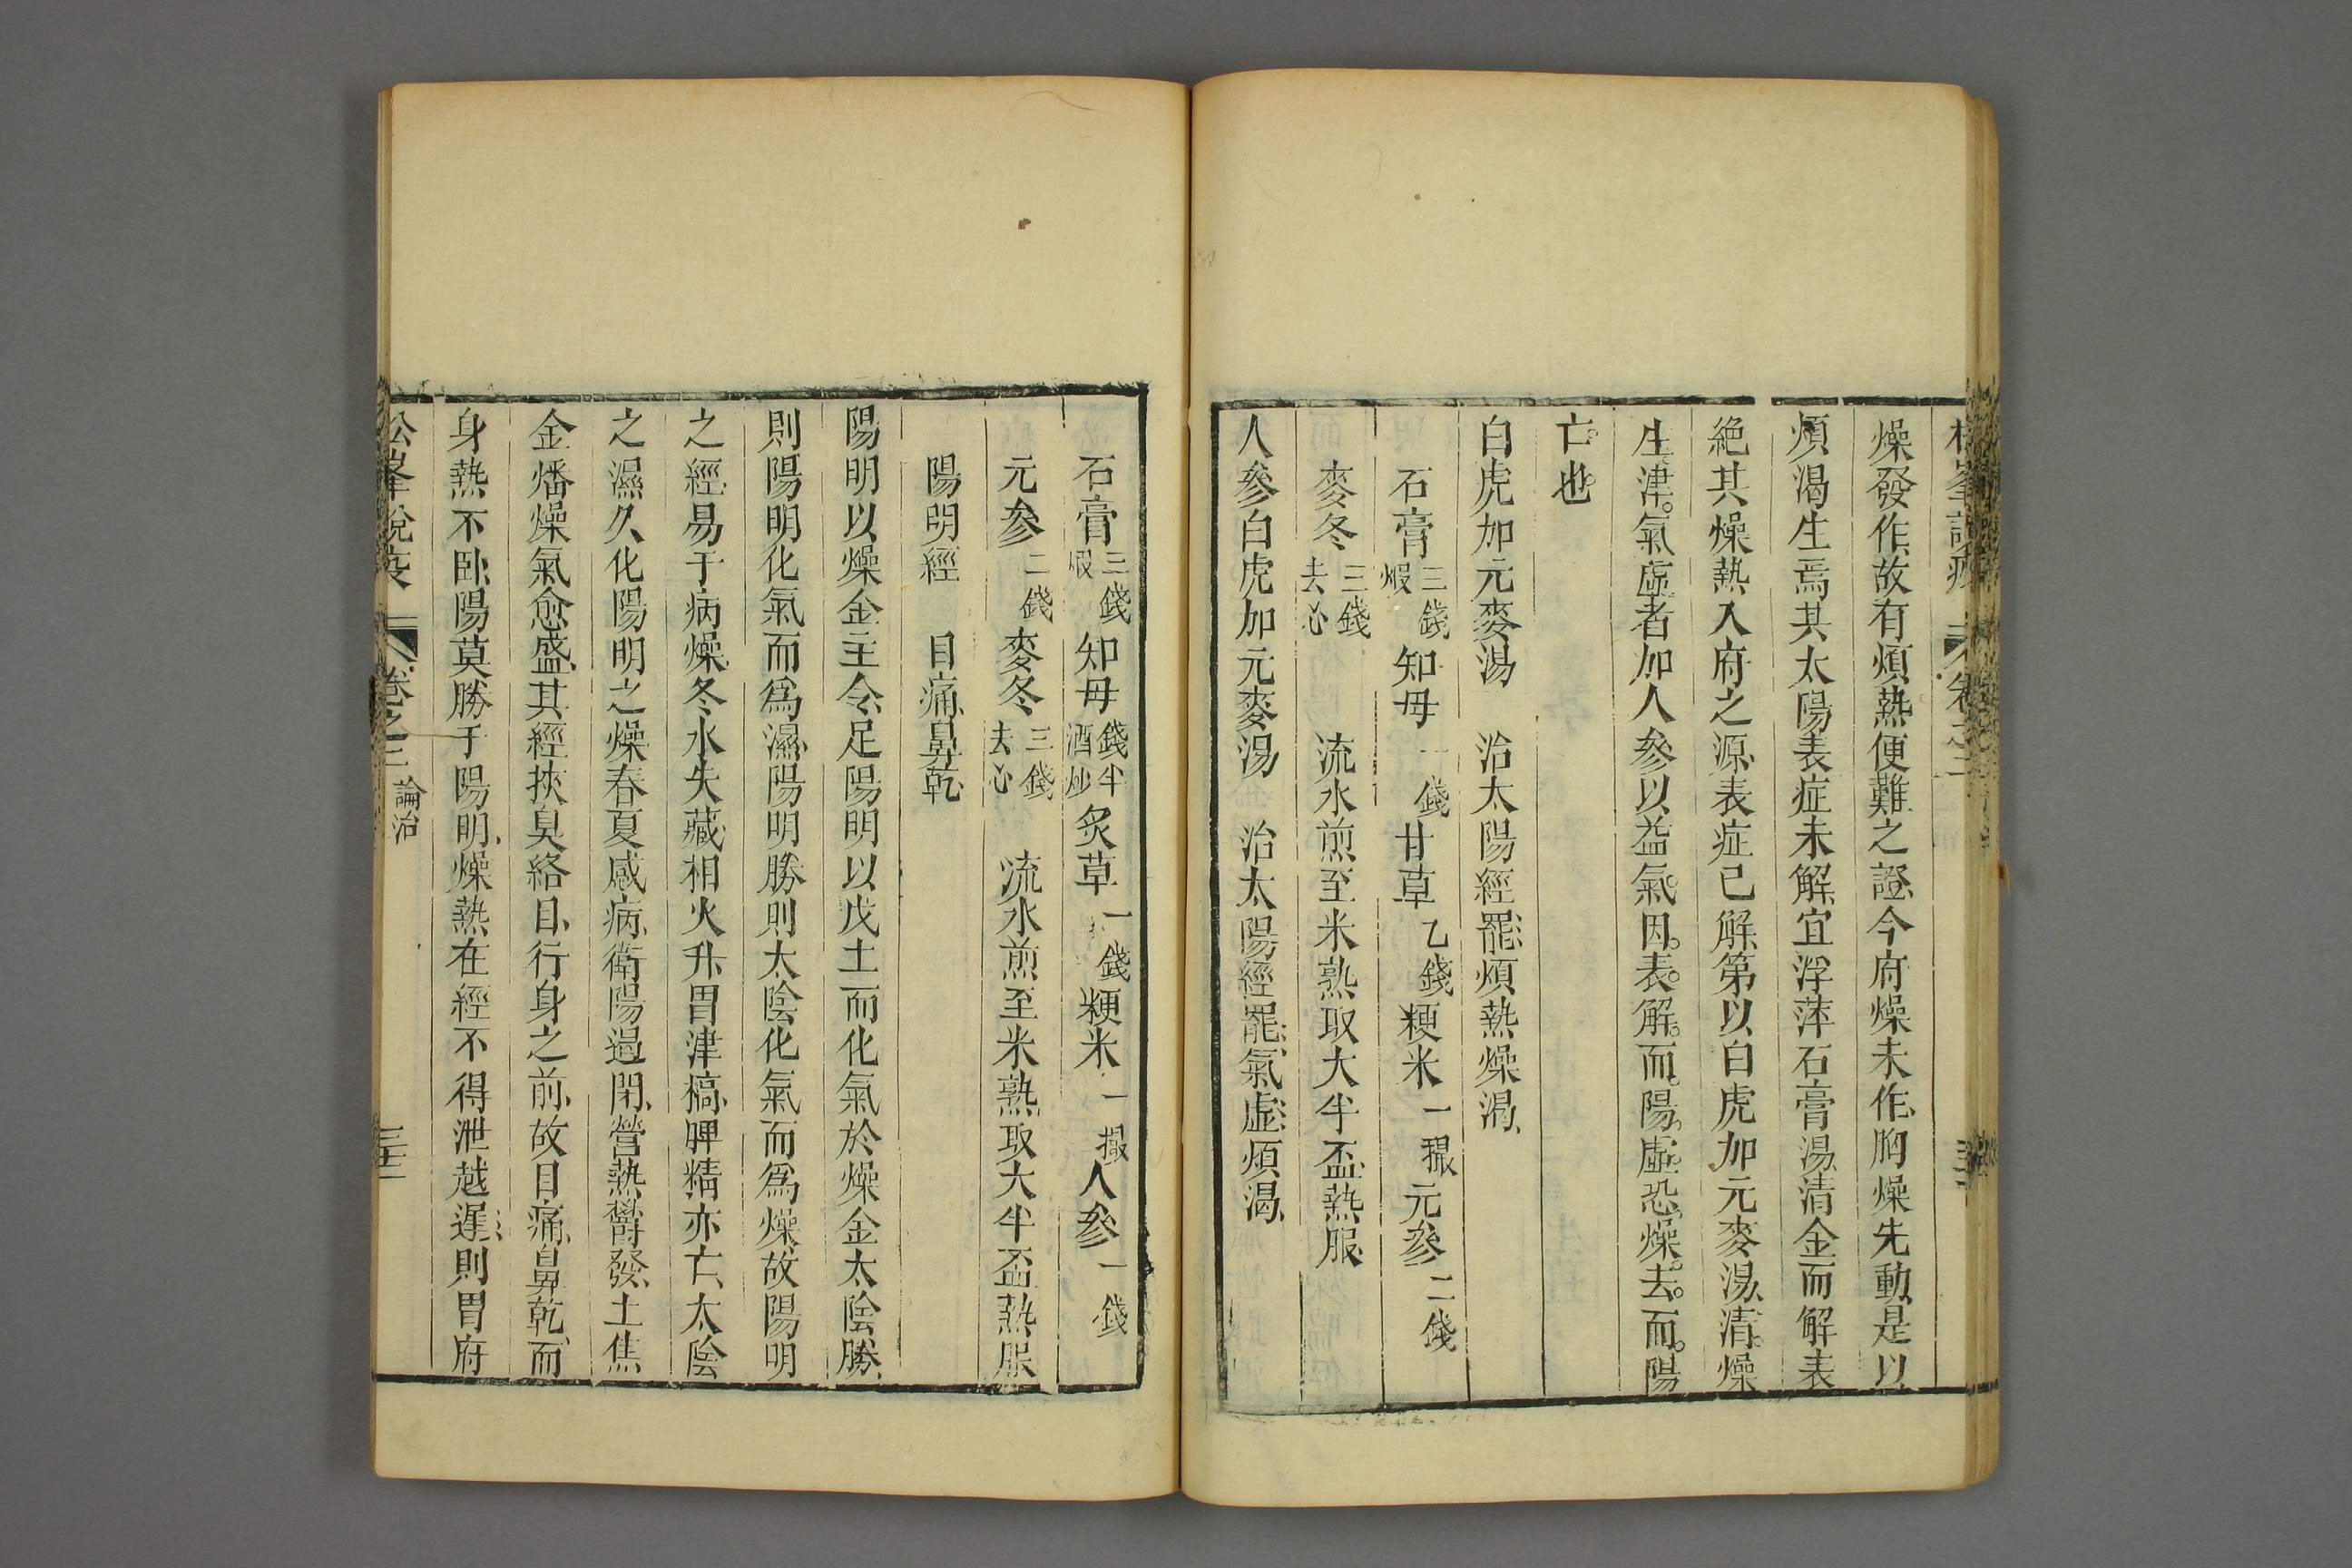 松峯說疫 卷之二
燥發作、故有煩熱便難之證、今府燥未作、胸燥先動、是以
煩渴生焉、其太陽表症未解、宜浮萍石膏湯、清金而解表
絕其燥熱入府之源、表症已解、第以白虎加元麥湯、清燥
生津。氣虛者加人參以益氣。因。表。解。而。陽。虛。恐。燥。去。而。陽
亡。也。
白虎加元麥湯 治太陽經罷、煩熱燥渴、
石膏三錢煅 知母一錢 甘草乙錢 粳米一撮 元參二錢
麥冬三錢去心 流水煎至米熟取大半盃熱服、
人參白虎加元麥湯 治太陽經罷、氣虛煩渴、
石膏三錢煅 知母錢半酒炒 炙草一錢 粳米一撮 人參一錢
元參二錢 麥冬三錢去心 流水煎至米熟、取大半盃熱服
陽明經 目痛、鼻乾、
陽明以燥金主令、足陽明以戊土而化氣於燥金太陰勝、
則陽明化氣而爲濕、陽明勝則太陰化氣而爲燥、故陽明
之經、易于病燥、冬水失藏、相火升、胃津槁、脾精亦亡、太陰
之濕、久化陽明之燥、春夏感病、衛陽遏閉、營熱欝發、土焦
金燔、燥氣愈盛、其經挾鼻絡目、行身之前、故目痛、鼻乾、而
身熱不臥、陽莫勝于陽明、燥熱在經、不得泄越、遲則胃府
松峯說疫 卷之二 論治 三十二